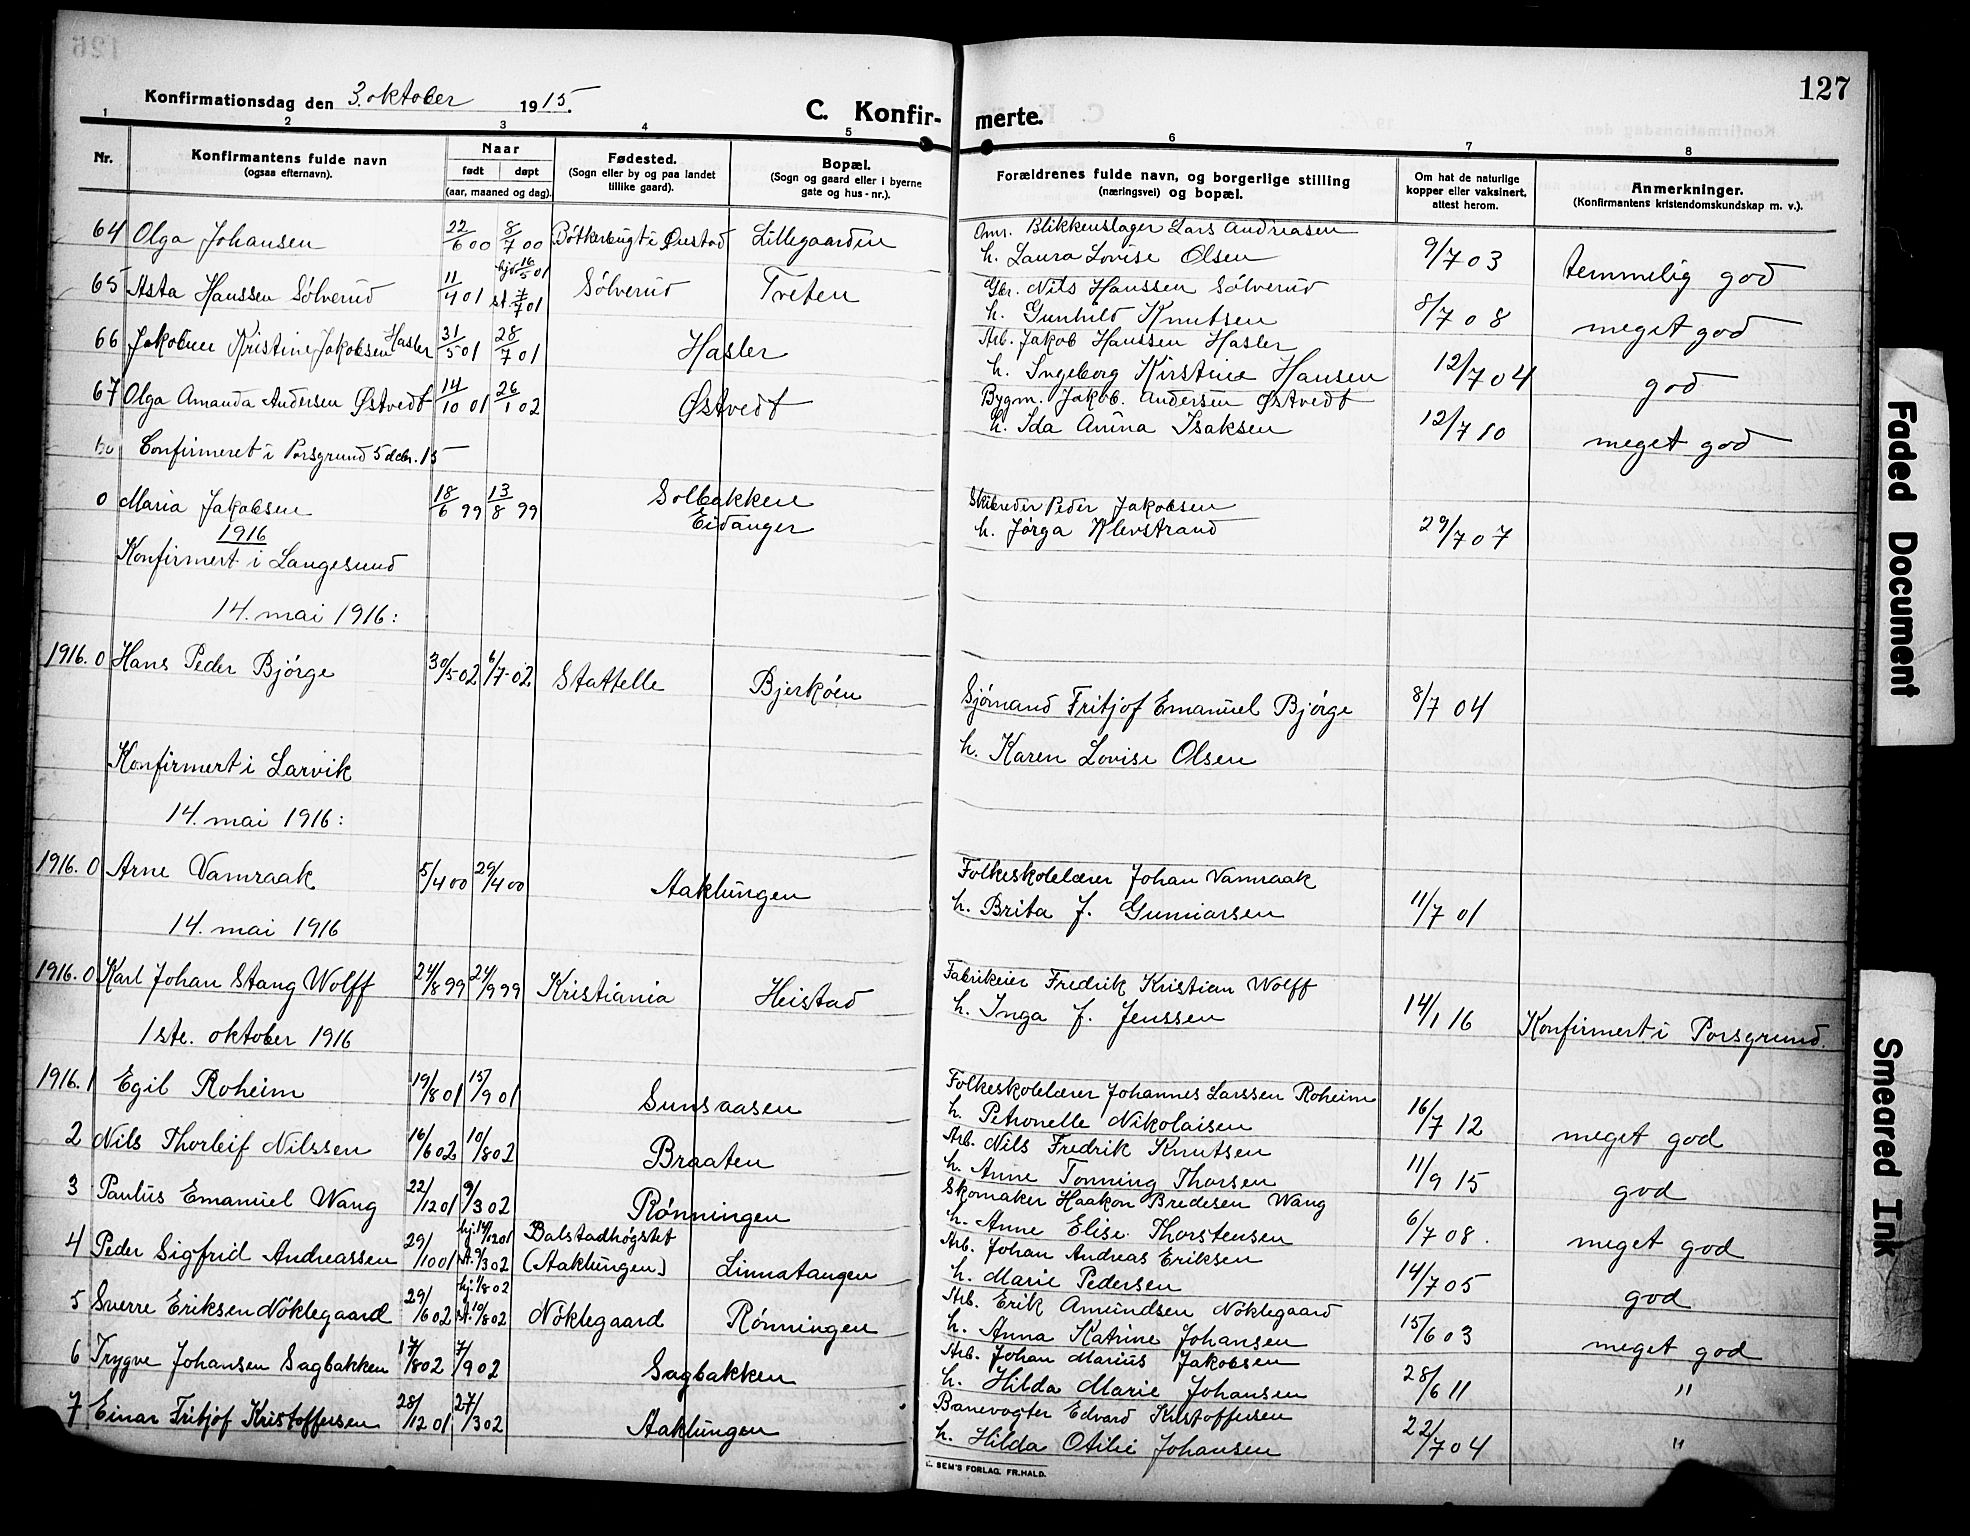 127
Konfirmationsdag den 3. oktober 1915.
C. Konfir- merte.
1 2 3 4 5 6 7 8
Nr.
Konfirmantens fulde navn
(ogsaa efternavn).
Naar
født døpt
(aar, maaned og dag).
Fødested.
(Sogn eller by og paa landet
tillike gaard).
Bopæl.
(Sogn og gaard eller i byerne
gate og hus-nr.).
Forældrenes fulde navn, og borgerlige stilling
(næringsvei) og bopæl.
Om hat de naturlige
kopper eller vaksinert.
attest herom.
Anmerkninger.
(Konfirmantens kristendomskundskap m. v.).
64 Olga Johansen 22/6 00 8/7 00 Lillegaarden Blikkenslager Lars Andreasen
h. Laura Lovise Olsen 9/7 03 temmelig god
65 Asta Hanssen Sølverud 11/4 01 hjd. 16/5 01 st. 7/7 01 Sølverud Tveten Gbr. Nils Hanssen Sølverud
h. Gunhild Knutsen 8/7 08 meget god
66 Jakobine Kristine Jakobsen Hasler 31/5 01 28/7 01 Hasler Arb. Jakob Hanssen Hasler
h. Ingeborg Kirstine Hansen 12/7 04 god
67 Olga Amanda Andersen Østvedt 14/10 01 26/1 02 Østvedt Bygm. Jakob Andersen Østvedt
h. Ida Anina Isaksen 12/7 10 meget god
Confirmeret i Porsgrund 5 dcbr. 15
0 Maria Jakobsen 18/6 99 13/8 99 Solbakken
Eidanger Skibsreder Peder Jakobsen
h. Jørga Klevstrand 29/7 07
1916
Konfirmert i Langesund
14. mai 1916:
1916. 0 Hans Peder Bjørge 30/5 02 6/7 02 Stathelle Bjerkøen Sjømand Fritjof Emanuel Bjørge 8/7 04
h. Karen Lovise Olsen
Konfirmert i Larvik
14. mai 1916:
1916. 0 Arne Vamraak 5/4 00 29/4 00 Aaklungen Folkeskolelærer Johan Vamraak
h. Brita J. Gunnarsen 11/7 01
14. mai 1916
1916. 0 Karl Johan Stang Wolff 24/8 99 24/9 99 Kristiania Heistad Fabrikeier Fredrik Kristian Wolff
h. Inga J. Jenssen 14/1 16 Konfirmert i Porsgrund.
1ste. oktober 1916
1916. 1 Egil Roheim 19/8 01 15/9 01 Sunsaasen Folkeskolelærer Johannes Larssen Roheim
h. Petronelle Nikolaisen 16/7 12 meget god
2 Nils Thorleif Nilssen 16/6 02 10/8 02 Braaten Arb. Nils Fredrik Knutsen
h. Anne Tonning Thorsen 11/9 15 god
3 Paulus Emanuel Wang 22/12 01 9/3 02 Rønningen Skomaker Haakon Bredesen Wang
h. Anne Elise Thorstensen 6/7 08. meget god
4 Peder Sigfrid Andreassen 29/10 01 hj. 14/12 01 st. 9/3 02 Balstadhøgstet
(Aaklungen) Linnatangen Arb. Johan Andreas Eriksen
h. Marie Pedersen 14/7 05 god
5 Sverre Eriksen Nøklegaard 29/6 02 hj. 1/8 02 st. 10/8 02 Nøklegaard Rønningen Arb. Erik Amundsen Nøklegaard
h. Anna Katrine Johansen 15/6 03 meget god
6 Trygve Johansen Sagbakken 17/8 02 7/9 02 Sagbakken Arb. Johan Marius Jakobsen
h. Hilda Marie Johansen 28/6 11 "
7 Einar Fritjof Kristoffersen 28/12 01 27/3 02 Aaklungen Banevogter Edvard Kristoffersen
h. Hilda Otilie Johansen 22/7 04 "
SEM'S FORLAG. FR.HALD.
Faded Document
Smeared Ink